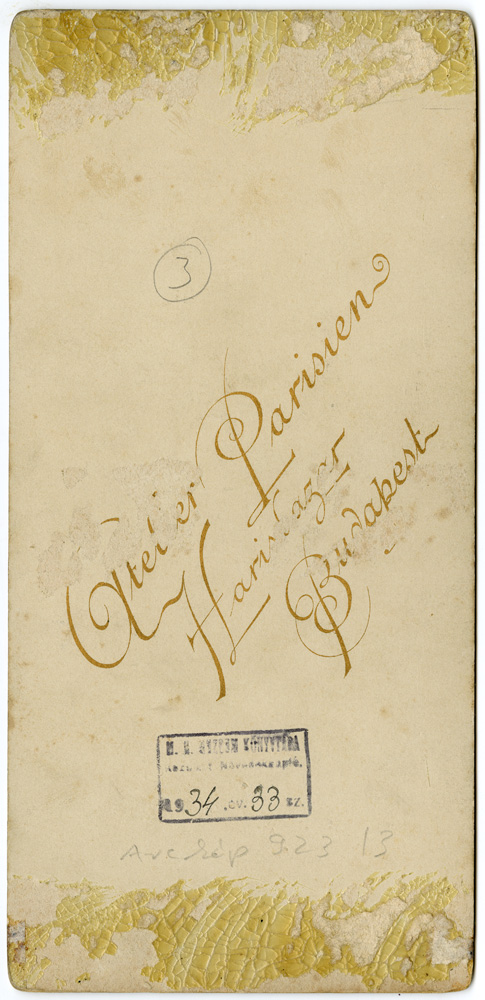 3
Atelier Parisien
Haris bazar
Budapest
M. N. MUZEUM KÖNYVTÁRA
Növedéknapló.
1934. ÉV. 33 SZ.
Arckép 923 13